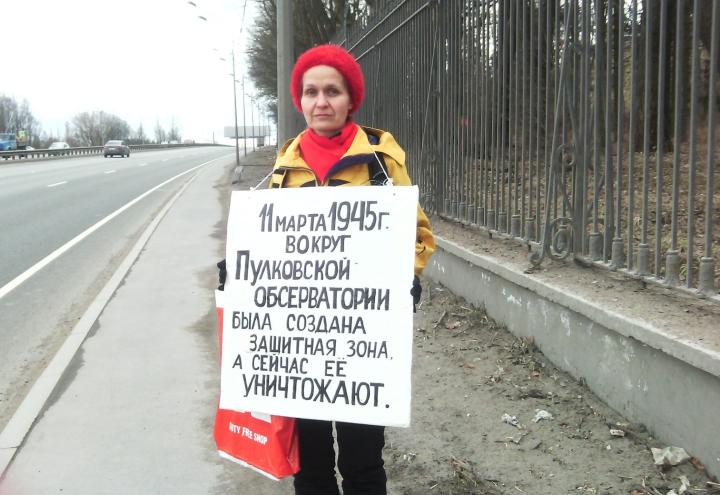 11 МАРТА 1945 г.
ВОКРУГ
ПУЛКОВСКОЙ
ОБСЕРВАТОРИИ
БЫЛА СОЗДАНА
ЗАЩИТНАЯ ЗОНА,
А СЕЙЧАС ЕЁ
УНИЧТОЖАЮТ.
FREE SHOP